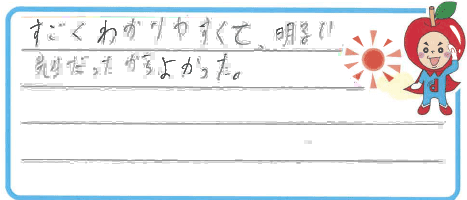 すごくわかりやすくて、明るい
先生だったからよかった。